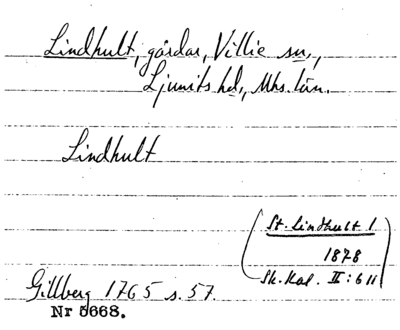 Lindhult, gårdar, Villie sn.,
Ljunits hd., Mhs. län.
Lindhult
St. Lindhult 1
1878
Sk. Kal. II: 611
Gillberg 1765 s. 57.
Nr 5668.